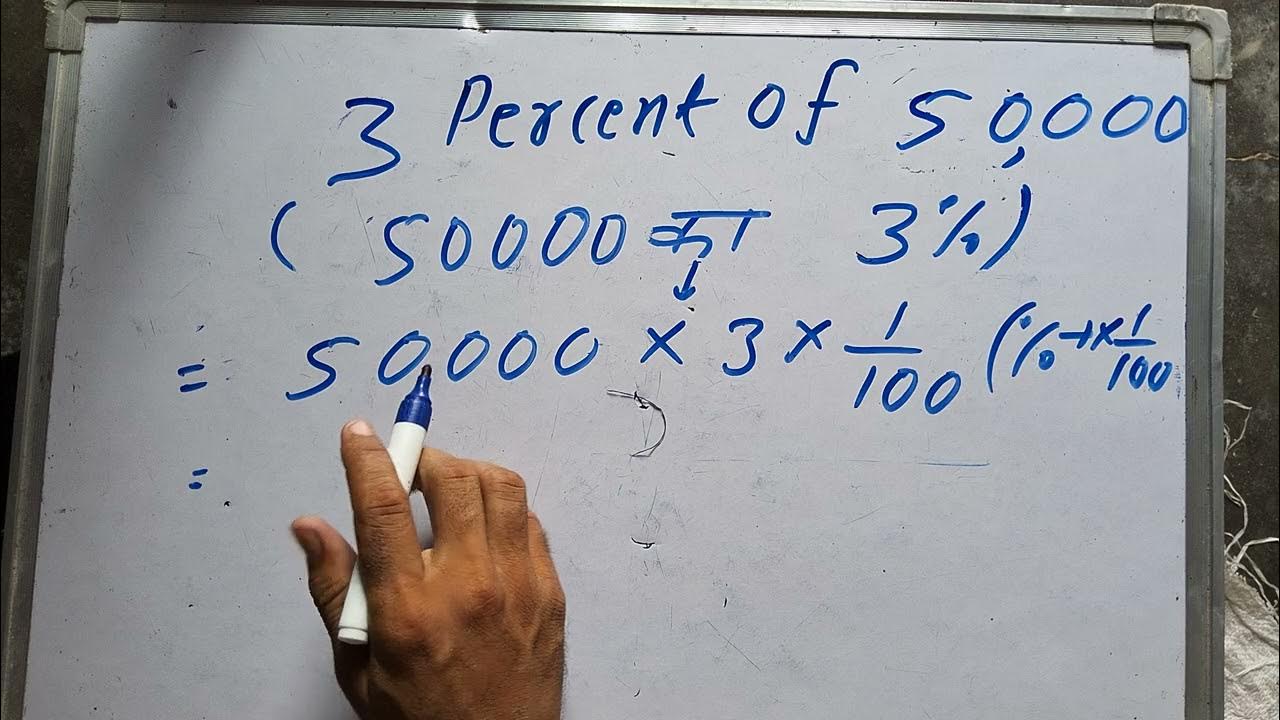 3 Percent of 50,000
( 50000 का 3%)
↓
= 50000 × 3 × 1/100 (% → × 1/100
=